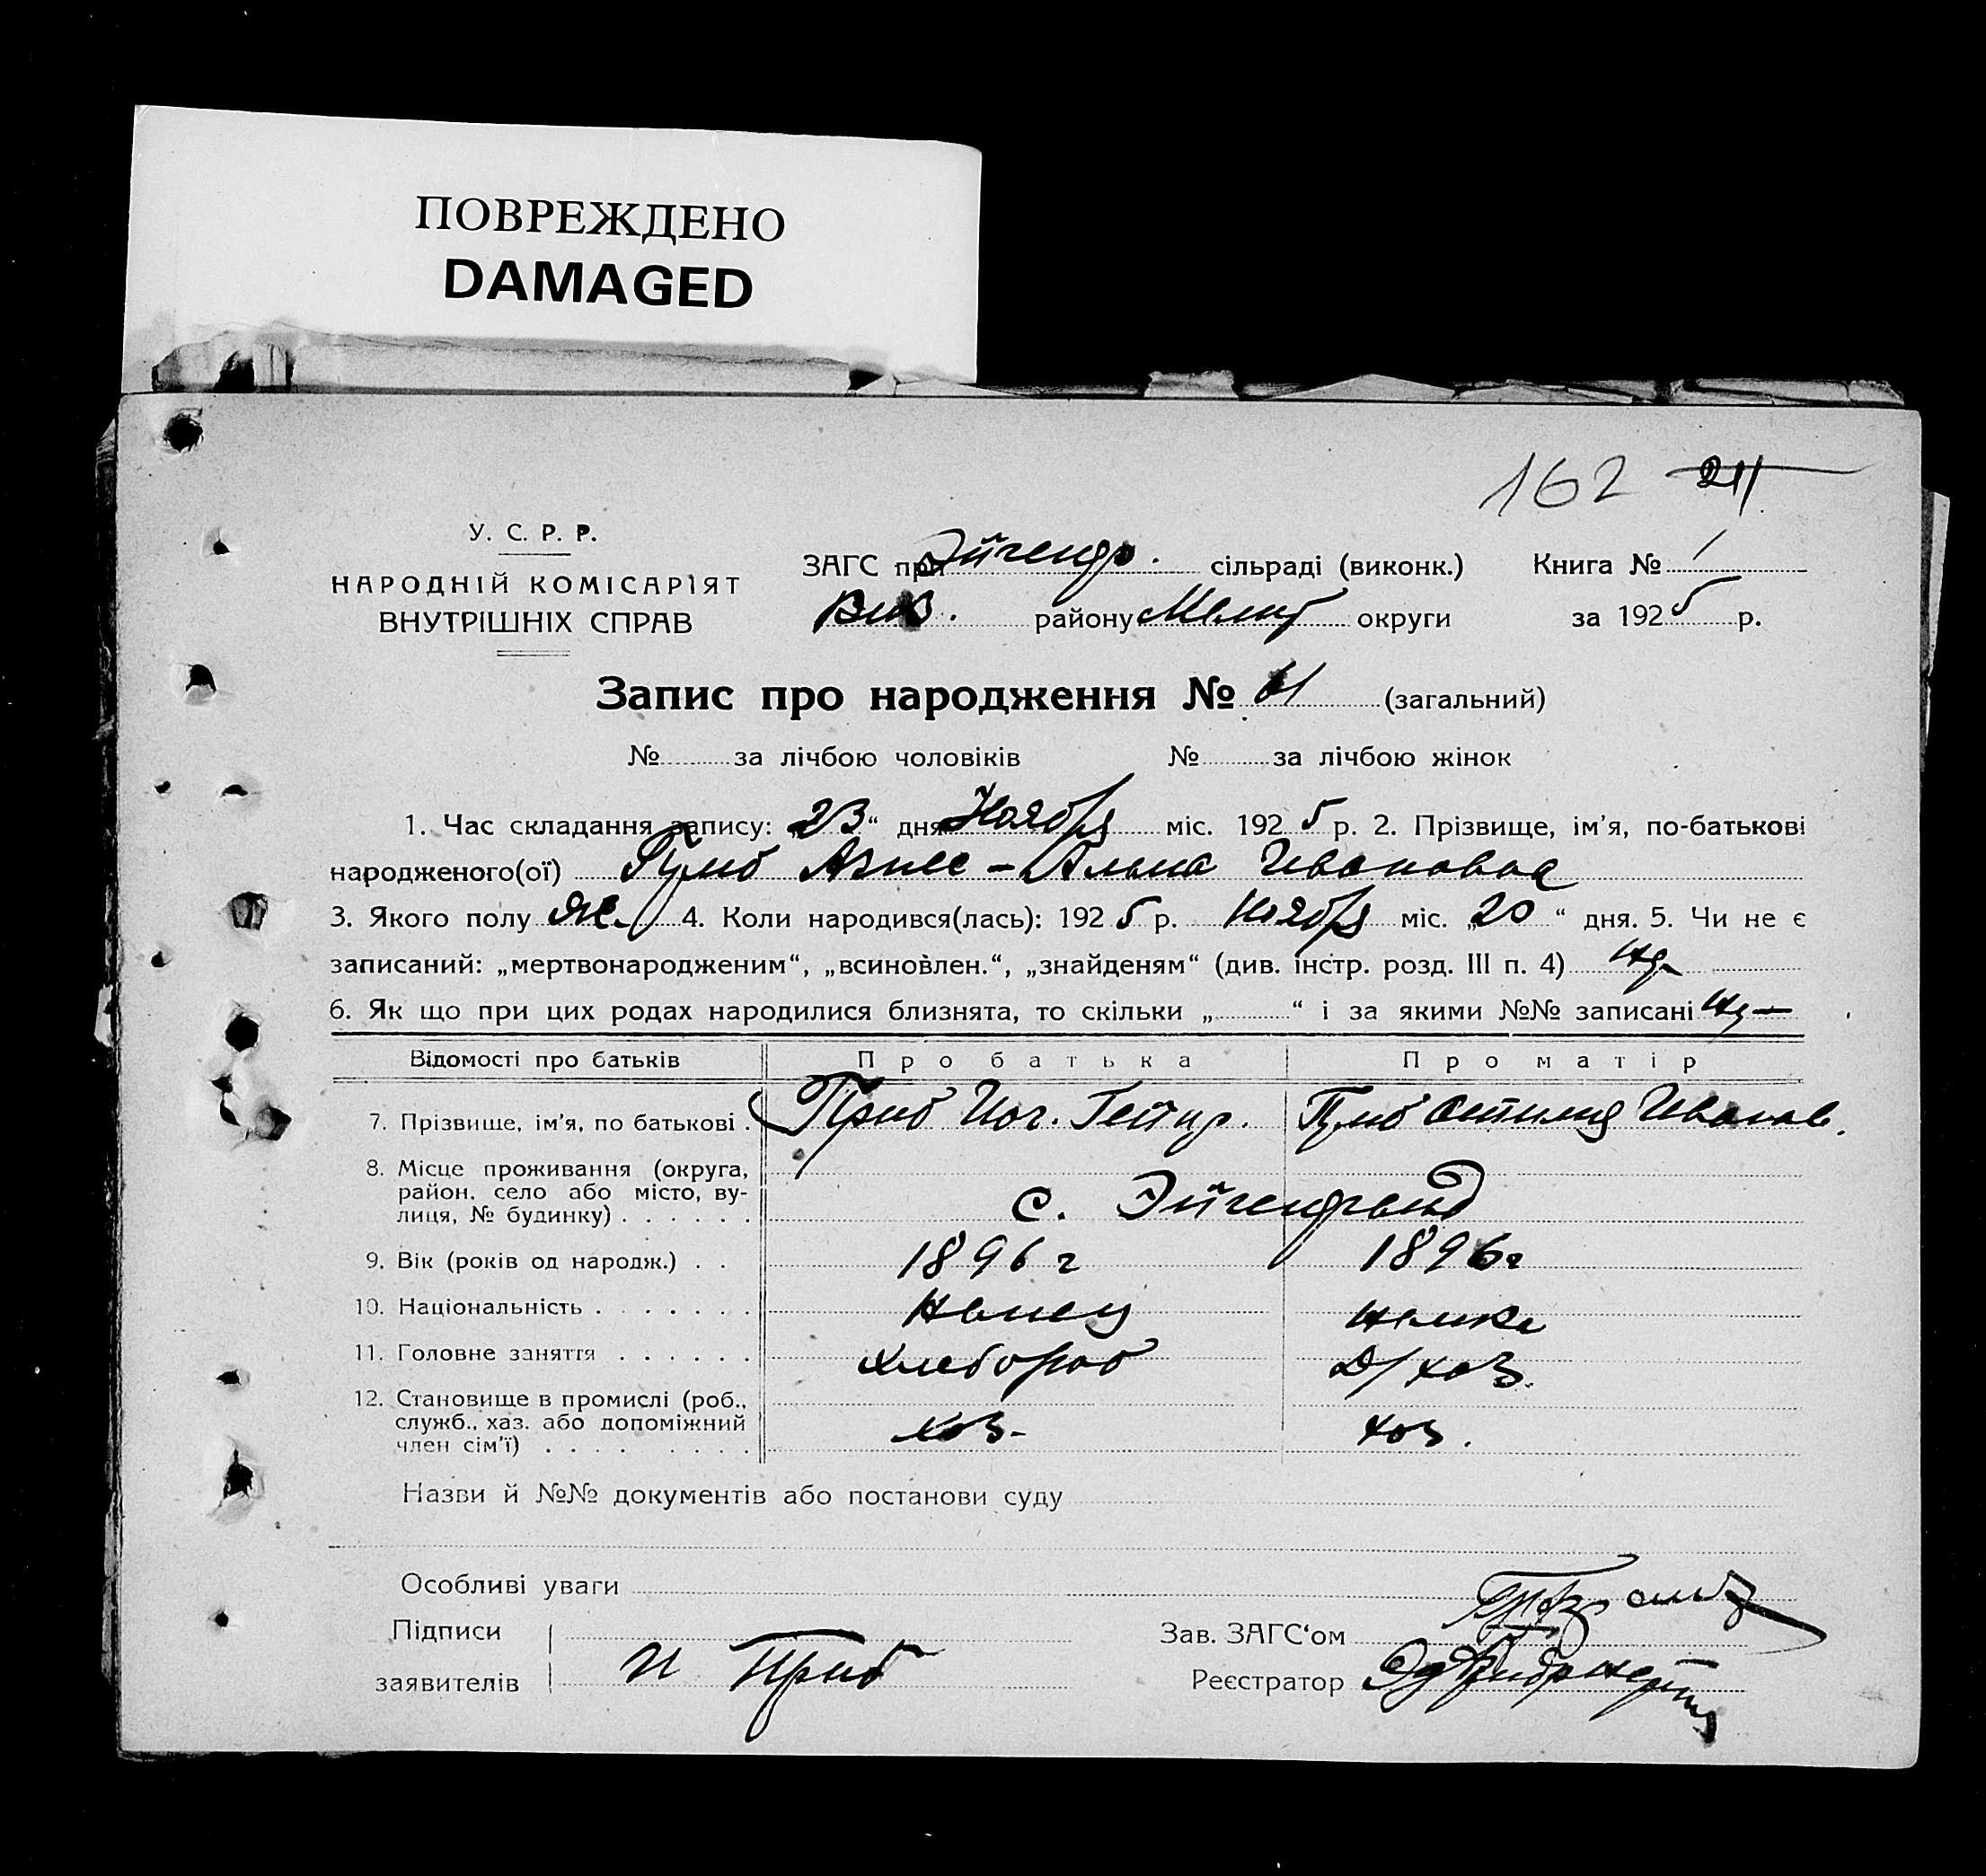 ПОВРЕЖДЕНО
DAMAGED
162 211
У. С. Р. Р.
НАРОДНІЙ КОМІСАРІЯТ
ВНУТРІШНІХ СПРАВ
ЗАГС при Эйгенгр. сільраді (виконк.) Книга № 1
району Мелит округи за 1925 р.
Запис про народження № 61 (загальний)
№ за лічбою чоловіків № за лічбою жінок
1. Час складання запису: „23“ дня Ноября міс. 1925 р. 2. Прізвище, ім'я, по-батькові
народженого(ої) Агнес - Альма Ивановна
3. Якого полу Ж. 4. Коли народився(лась): 1925 р. Ноября міс. „20“ дня. 5. Чи не є
записаний: „мертвонародженим“, „всиновлен.“, „знайденям“ (див. інстр. розд. III п. 4)
6. Як що при цих родах народилися близнята, то скільки „ “ і за якими №№ записані
Відомості про батьків Про батька Про матір
7. Прізвище, ім'я, по батькові . Иог. Гейнр. Оттилия Иванов.
8. Місце проживання (округа,
район, село або місто, ву-
лиця, № будинку) . . . . . . с. Эйгенгранд
9. Вік (років од народж.) . . 1896 г 1896 г
10. Національність . . . . . . . Немец Немка
11. Головне заняття . . . . . . Хлебороб Д/хоз.
12. Становище в промислі (роб.,
служб., хаз. або допоміжний
член сім'ї) . . . . . . . . хоз. хоз.
Назви й №№ документів або постанови суду
Особливі уваги
Підписи
Зав. ЗАГС‘ом
заявителів И
Реєстратор